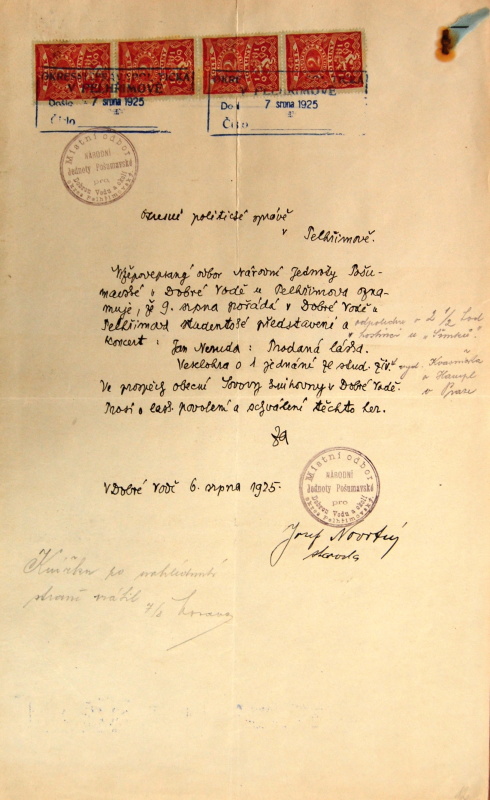 OKRESNÍ SPRÁVA POLITICKÁ
V PELHŘIMOVĚ
Došlo 7 srpna 1925
Číslo
OKRESNÍ SPRÁVA POLITICKÁ
V PELHŘIMOVĚ
Došlo 7 srpna 1925
Číslo
Místní odbor
NÁRODNÍ
Jednoty Pošumavské
pro
Dobrou Vodu a okolí
okres Pelhřimovský
Okresní politické správě
v Pelhřimově.
Nížepodepsaný odbor Národní Jednoty Pošu-
mavské v Dobré Vodě u Pelhřimova ozna-
muje, že 9. srpna pořádá v Dobré Vodě u
Pelhřimova studentské představení a odpoledne v 2 1/2 hod
koncert: v hostinci u
Jan Neruda: Prodaná láska.
Veselohra o 1 jednání ze stud. živ. vyd. Kosnička
a Hampl
v Praze
Ve prospěch obecní knihovny v Dobré Vodě
Prosí o lask. povolení a schválení těchto her.
Za
V Dobré Vodě 6. srpna 1925.
Místní odbor
NÁRODNÍ
Jednoty Pošumavské
pro
Dobrou Vodu a okolí
okres Pelhřimovský
Josef Novotný
starosta
Knížku po nahlédnutí
straně vrátil
7/8